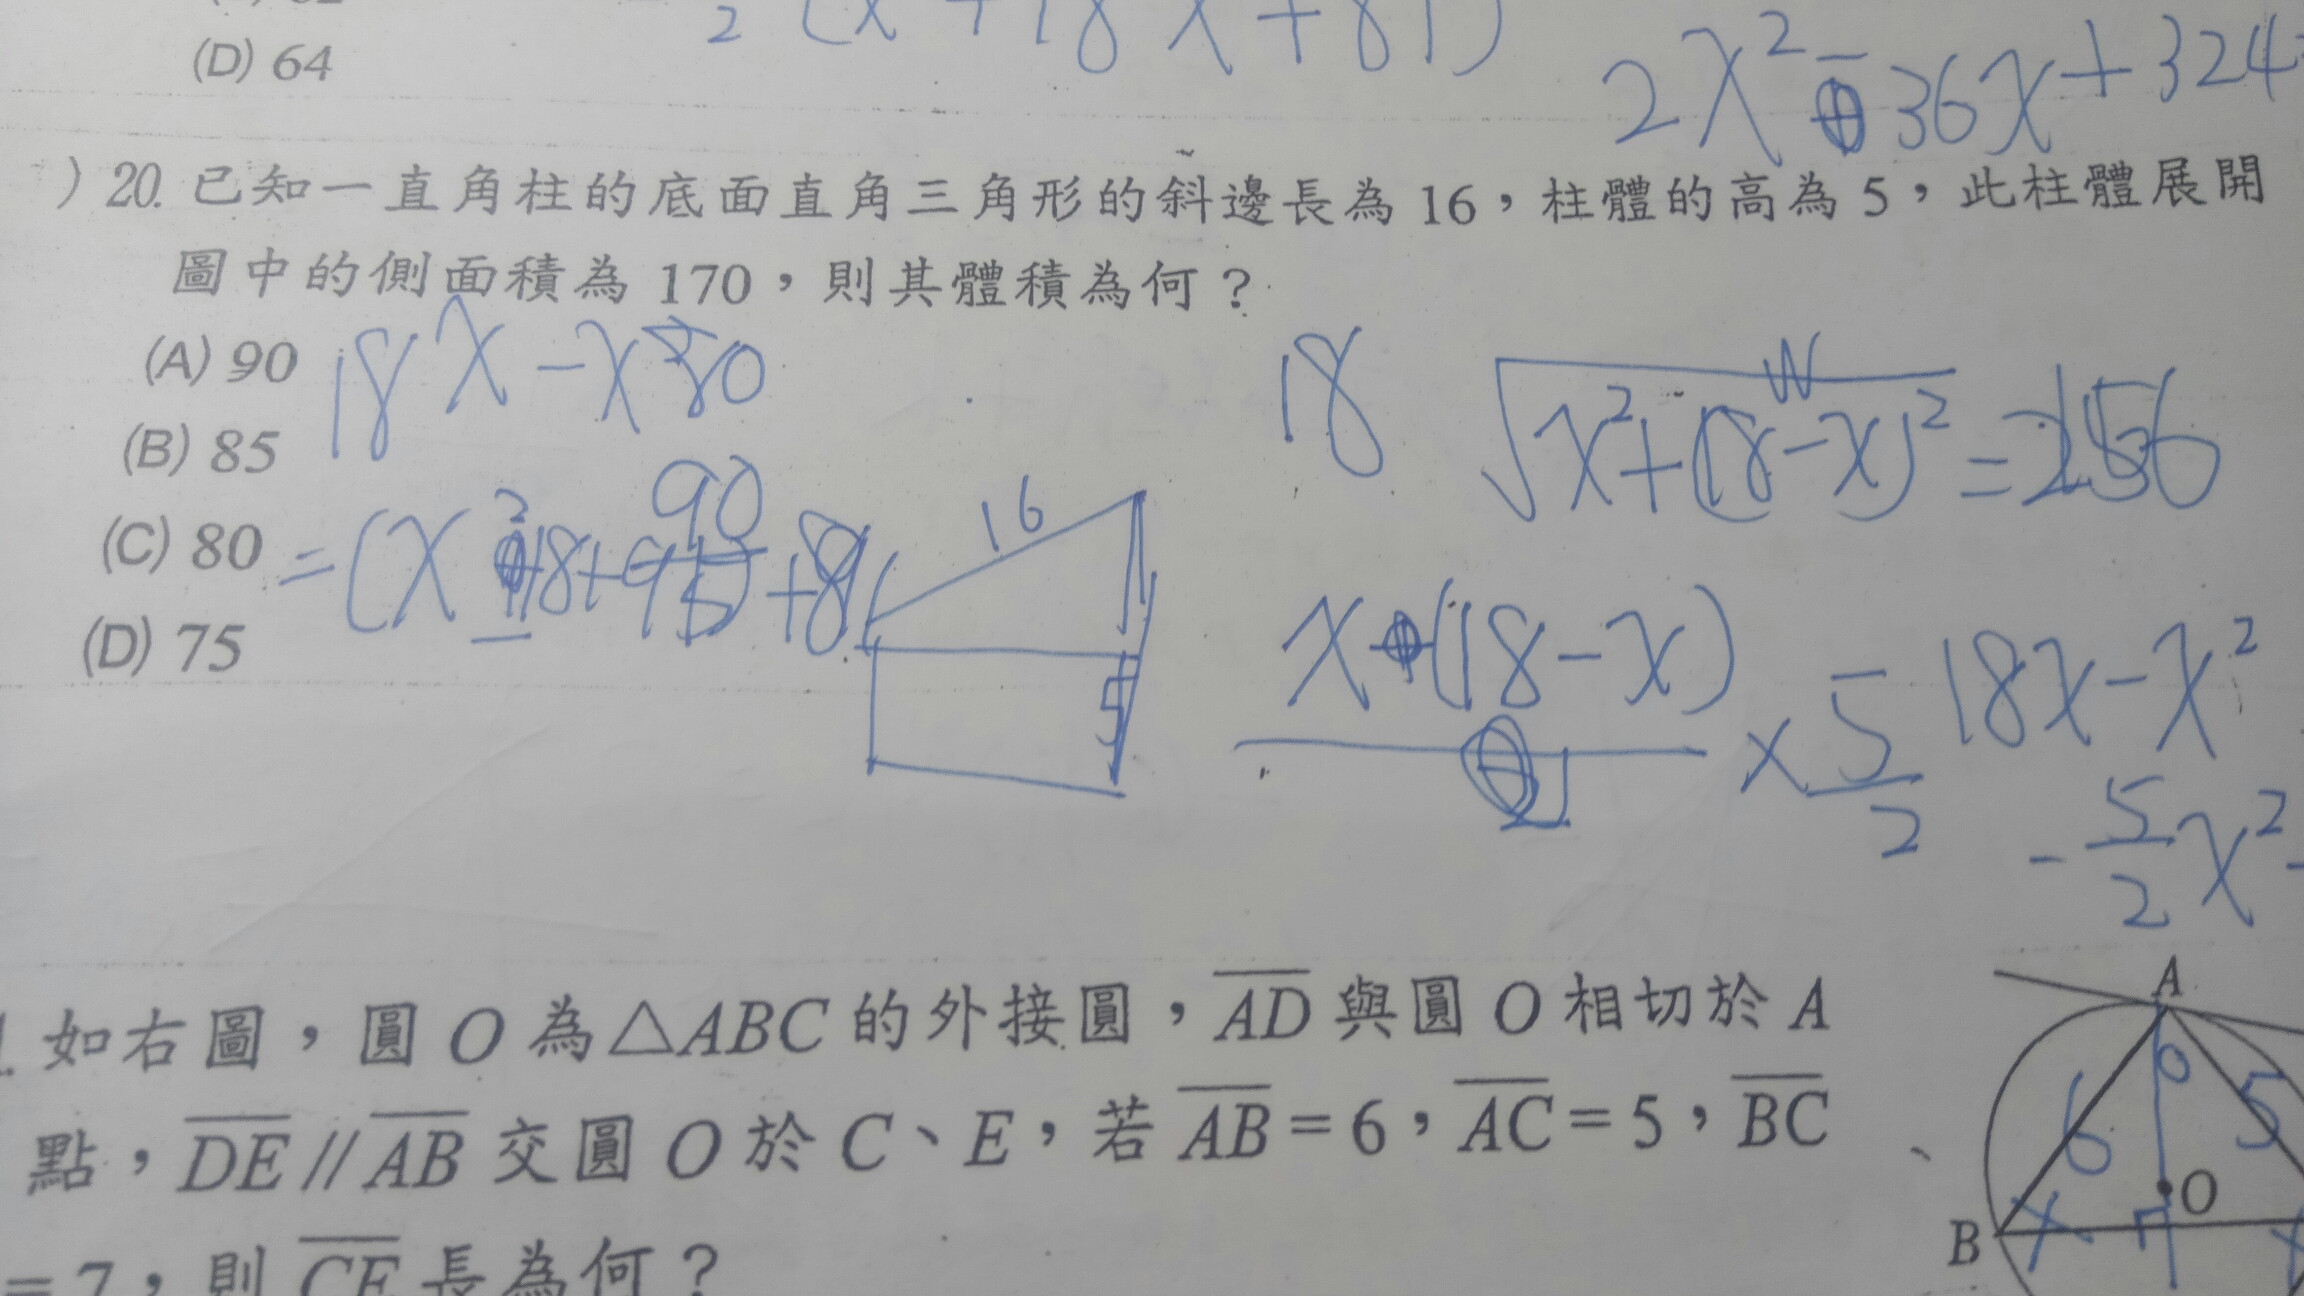 (D) 64
2 (x + 18x + 81)
2x² - 36x + 324
) 20. 已知一直角柱的底面直角三角形的斜邊長為 16，柱體的高為 5，此柱體展開
圖中的側面積為 170，則其體積為何？
(A) 90
(B) 85
(C) 80
(D) 75
18x - x
18
√x²+(18-x)² = 256
16
5
x (18-x)
× 5/2
18x - x²
- 5/2 x²
如右圖，圓 O 為△ABC 的外接圓，AD 與圓 O 相切於 A
點，DE // AB 交圓 O 於 C、E，若 AB = 6，AC = 5，BC
= 7，則 CE 長為何？
A
6
5
O
B